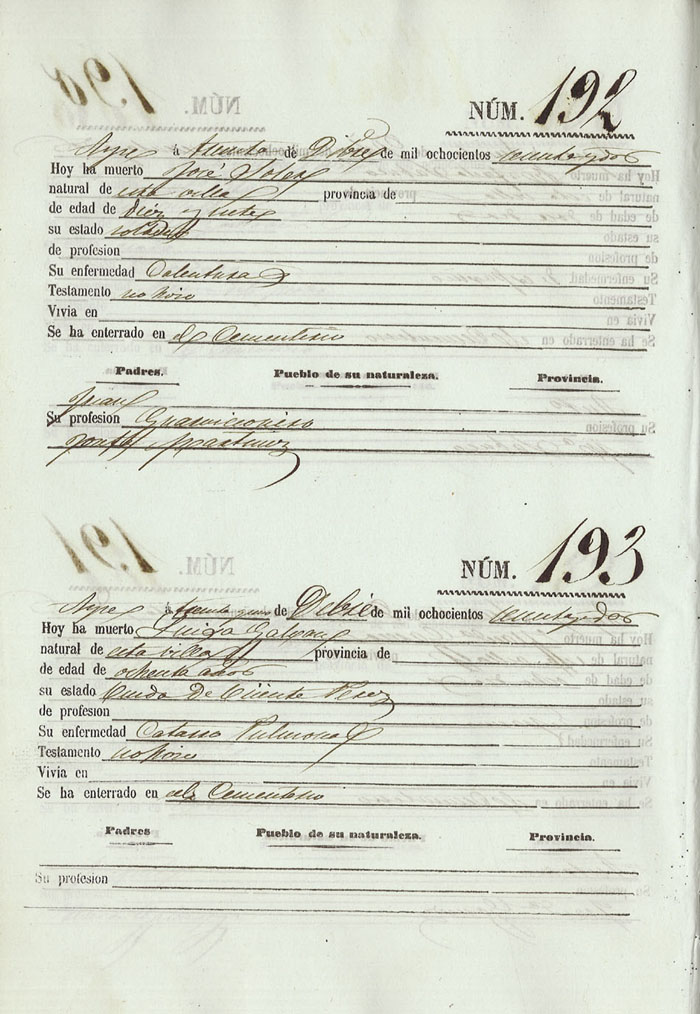 NÚM. 192
Aspe á treinta de Dbre de mil ochocientos
Hoy ha muerto José Soler
natural de esta villa provincia de
de edad de Diez y siete
su estado soltero
de profesion
Su enfermedad Calentura
Testamento no hizo
Vivia en
Se ha enterrado en el Cementerio
Padres. Pueblo de su naturaleza. Provincia.
Juan
Su profesion Guarnicionero
Martinez
NÚM. 193
Aspe á treinta de Dbre de mil ochocientos
Hoy ha muerto Luisa Galvan
natural de esta villa provincia de
de edad de ochenta años
su estado Viuda De Vicente Perez
de profesion
Su enfermedad Cataro Pulmonal
Testamento no hizo
Vivia en
Se ha enterrado en el Cementerio
Padres Pueblo de su naturaleza. Provincia.
Su profesion